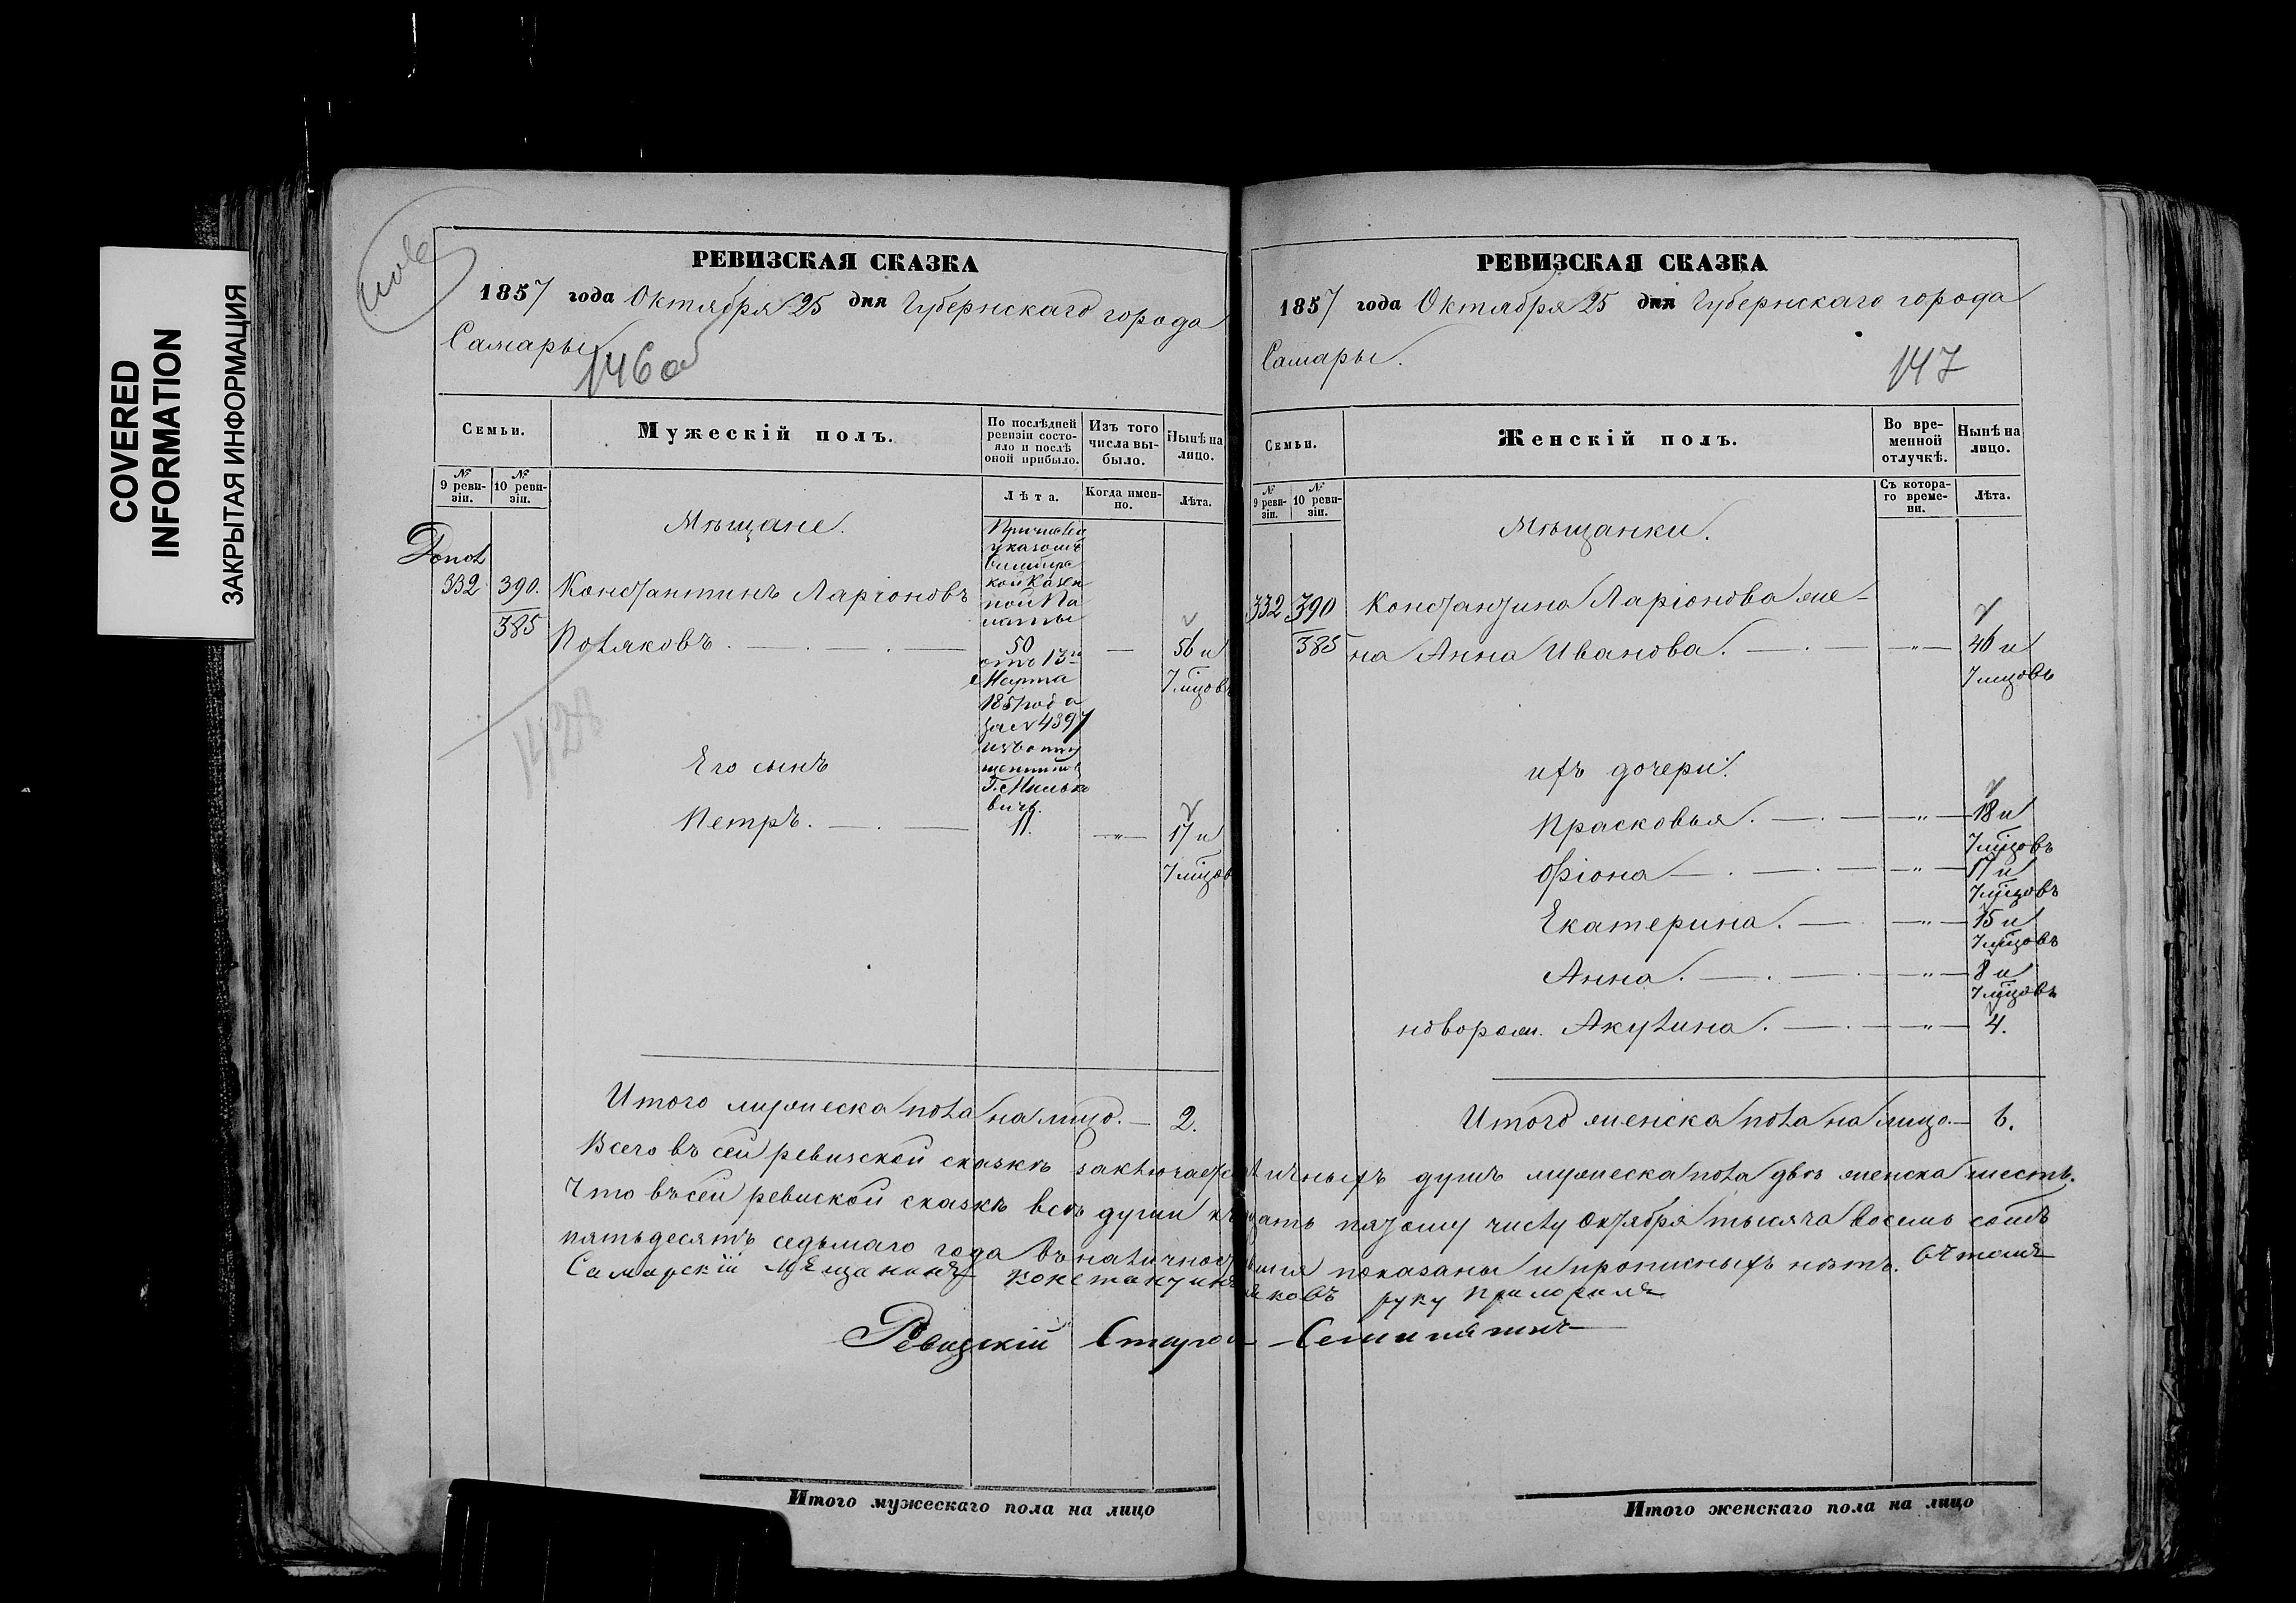 COVERED
INFORMATION
ЗАКРЫТАЯ ИНФОРМАЦИЯ
РЕВИЗСКАЯ СКАЗКА
1857 года Октября 25 дня Губернскаго города
Самары
146 об
Семьи.
Мужескій полъ.
По послѣдней ревизіи состояло и послѣ оной прибыло.
Изъ того числа выбыло.
Нынѣ на лицо.
№ 9 ревизіи.
№ 10 ревизіи.
Лѣта.
Когда именно.
Лѣта.
Мѣщане.
Причислен
указомъ
Симбирс
кой Казен
ной Па
латы
332 390. Константинъ Ларіоновъ
385 Поляковъ. 50 — 56 и
7 мцовъ
отъ 13го
Марта
1851 года
за № 4397
изъ отпу
щенниковъ
Его сынъ
Петръ. 11. — " — 17 и
7 мцовъ
Итого мужеска пола на лицо. — 2.
РЕВИЗСКАЯ СКАЗКА
1857 года Октября 25 дня Губернскаго города
Самары.
147
Семьи.
Женскій полъ.
Во временной отлучкѣ.
Нынѣ на лицо.
№ 9 ревизіи.
№ 10 ревизіи.
Съ котораго времени.
Лѣта.
Мѣщанки.
332 390 Константина Ларіонова же-
385 на Анна Иванова. — " — 46 и
7 мцовъ
ихъ дочери.
Прасковья. — " — 18 и
7 мцовъ
— " — 17 и
7 мцовъ
Екатерина. — " — 15 и
7 мцовъ
Анна. — " — 8 и
7 мцовъ
новорож. Акулина. — " — 4.
Итого женска пола на лицо — 6.
Всего въ сей ревизской сказкѣ заключается личныхъ душъ мужеска пола двѣ женска шесть.
Что въ сей ревиской сказкѣ всѣ души къ дватцать пятому числу Октября тысяча восемь сотъ
пятьдесятъ седьмаго года въ наличности показаны и прописныхъ нѣтъ. Въ томъ
Самарскій Мещанинъ Константинъ Поляковъ руку приложилъ
Ревизскій Староста
Итого мужескаго пола на лицо
Итого женскаго пола на лицо